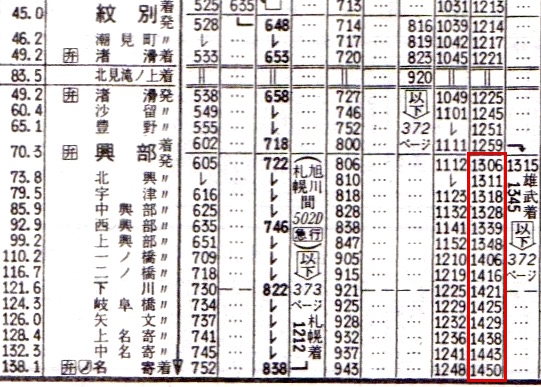 45.0 紋別 着 525 635 … 713 … … 1031 1213 …
発 528 … 648 … 714 … 816 1039 1214 …
46.2 潮見町 〃 ↓ … ↓ … 717 … 819 1042 1217 …
49.2 弁 渚滑着 533 … 653 … 720 … 823 1045 1221 …
83.5 北見滝ノ上着 || … || … || … 920 || || …
49.2 弁 渚滑発 538 … 658 … 727 … 以下 1049 1225 …
60.4 沙留 〃 549 … ↓ … 746 … 1101 1245 …
65.1 豊野 〃 555 … ↓ … 752 … 372 ↓ 1251 …
70.3 弁 興部 着 602 … 718 … 800 … ページ 1111 1259
発 605 … 722 … 806 … … 1112 1306 1315
73.8 北興 〃 ↓ … ↓ 810 … … ↓ 1311
79.5 宇津 〃 616 … ↓ 818 … … 1123 1318
85.9 中興部 〃 625 … ↓ 828 … … 1132 1328
92.9 西興部 〃 635 … 746 838 … … 1141 1339
99.2 上興部 〃 651 … ↓ 847 … … 1152 1348
110.2 一ノ橋 〃 709 … ↓ 905 … … 1210 1406
116.7 二ノ橋 〃 718 … ↓ 915 … … 1219 1416
121.6 下川 〃 730 822 921 … … 1225 1421 …
124.3 岐阜橋 〃 734 … ↓ 925 … … 1229 1425 …
126.0 矢文 〃 737 … ↓ 928 … … 1232 1429 …
128.4 上名寄 〃 741 … ↓ 932 … … 1236 1438 …
132.3 中名寄 〃 745 … ↓ 937 … … 1241 1443 …
138.1 弁 名寄着 … 838 943 … … 1248 1450 …
旭川
札幌 間
502D
急行
以下
373
ページ
札幌着
1212
雄武着
1345
以下
372
ページ